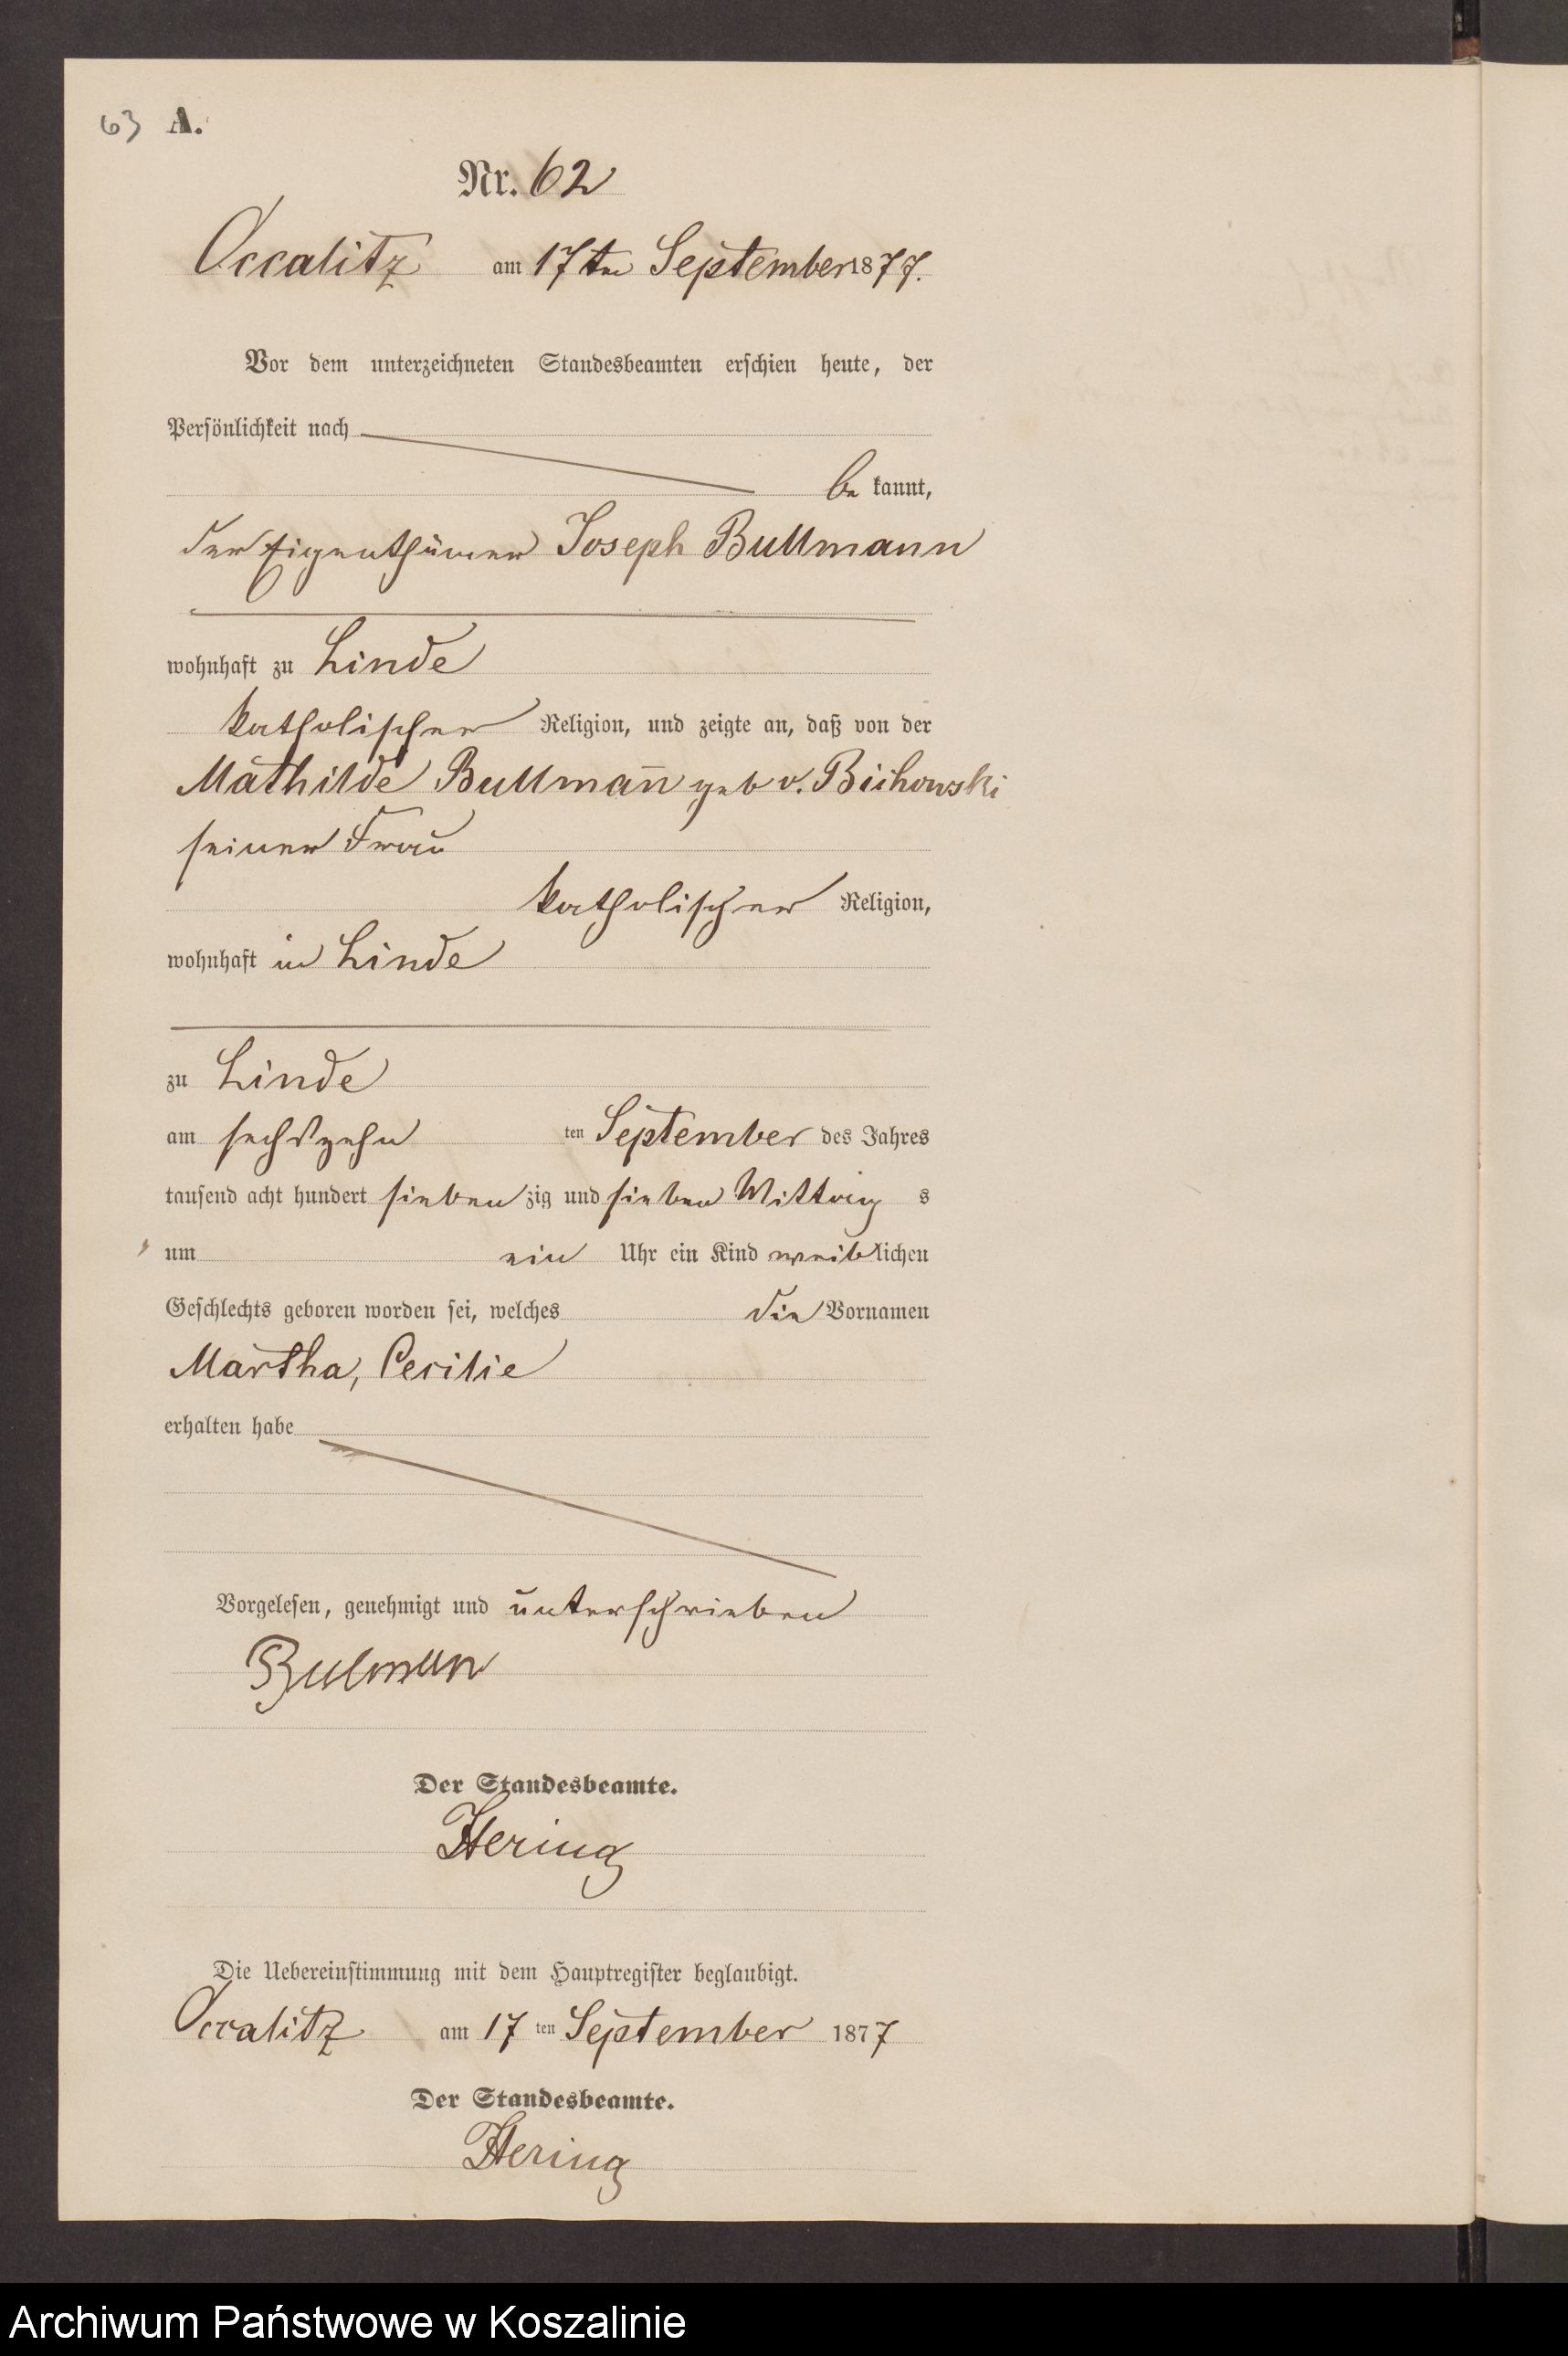 63 A.
Nr. 62
Occalitz am 17ten September 1877.
Vor dem unterzeichneten Standesbeamten erschien heute, der
Persönlichkeit nach
be kannt,
der Eigenthümer Joseph Bullmann
wohnhaft zu Linde
katholischer Religion, und zeigte an, daß von der
Mathilde Bullmann̄ geb v. Bichowski
seiner Frau
katholischer Religion,
wohnhaft in Linde
zu Linde
am sechszehn ten September des Jahres
tausend acht hundert sieben zig und sieben Mittag s
um ein Uhr ein Kind weiblichen
Geschlechts geboren worden sei, welches die Vornamen
Martha, Cecilie
erhalten habe
Vorgelesen, genehmigt und unterschrieben
Bulman
Der Standesbeamte.
Hering
Die Uebereinstimmung mit dem Hauptregister beglaubigt.
Occalitz am 17 ten September 1877
Der Standesbeamte.
Hering
Archiwum Państwowe w Koszalinie